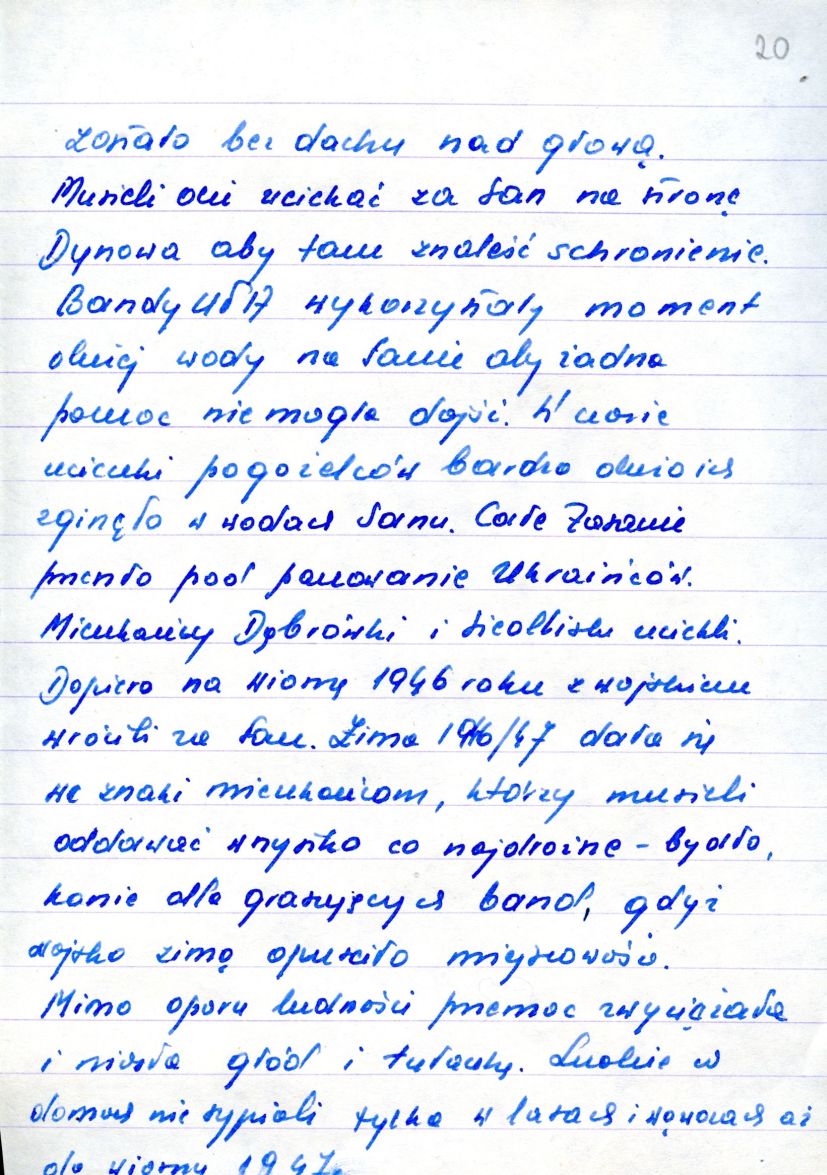 20
została bez dachu nad głową.
Musieli oni uciekać za San na stronę
Dynowa aby tam znaleść schronienie.
Bandy UPA wykorzystały moment
dużej wody na Sanie aby żadna
pomoc nie mogła dojść. W czasie
ucieczki pogorzelców bardzo dużo ich
zginęło w wodach Sanu. Całe Zasanie
przeszło pod panowanie Ukraińców.
Mieszkańcy Dąbrówki i Siedlisk uciekli.
Dopiero na wiosnę 1946 roku z wojskiem
wrócili za San. Zima 1946/47 dała się
we znaki mieszkańcom, którzy musieli
oddawać wszystko co najdroższe - bydło,
konie dla grasujących band, gdyż
wojsko zimą opuściło miejscowość.
Mimo oporu ludności przemoc zwyciężała
i niosła głód i tułaczkę. Ludzie w
domach nie sypiali tylko w lasach i wąwozach aż
do wiosny 1947.